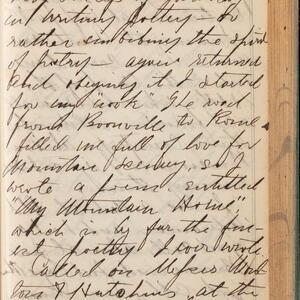 in writing poetry – or
rather imbibing the spirit
of poetry – again returned
and obeying it I started
for my "nook" The road
from Boonville to Rome
filled me full of love for
Mountain scenery, so I
wrote a poem entitled
"My Mountain Home",
which is by far the fin-
est poetry I ever wrote.
Called on Messrs
& Hutchins at the